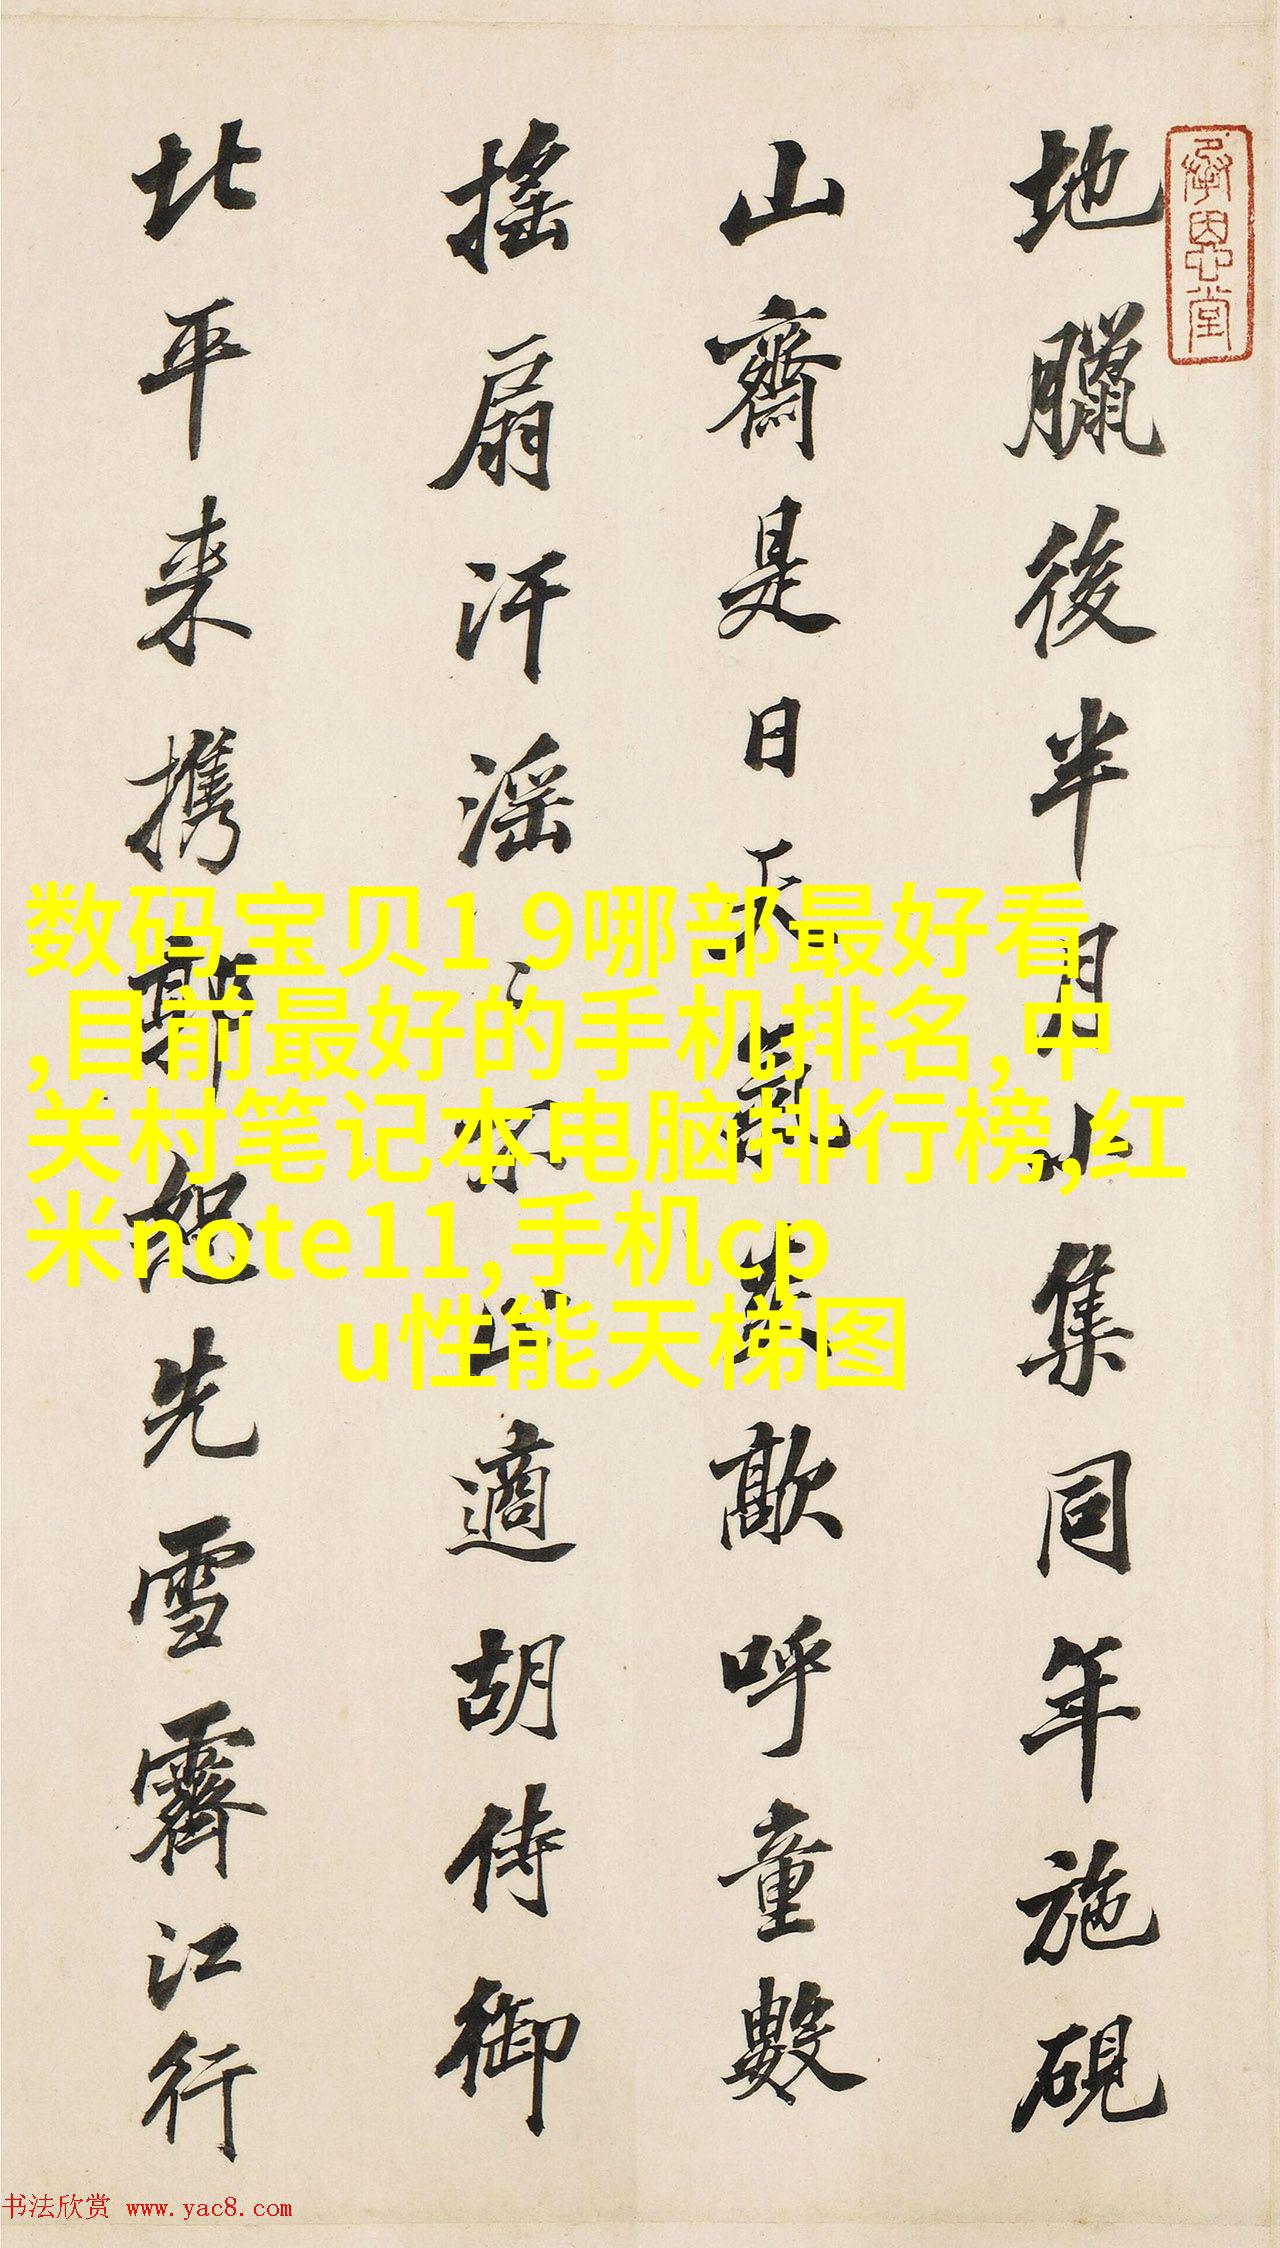 地臘後半月小集同年施硯
山齋是日天氣蒸歊呼童數
搖扇汗滛〻不止適胡侍御
北平来携郭恕先雪霽江行
承恩堂
数码宝贝1 9哪部最好看
,目前最好的手机排名,中
关村笔记本电脑排行榜,红
米note11,手机cp
u性能天梯图
书法欣赏 www.yac8.com